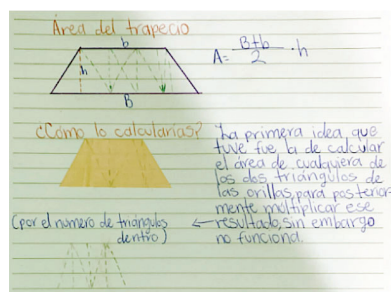 Área del trapecio
b
h
B
A = B+b / 2 · h
¿Cómo lo calcularías?
La primera idea que
tuve fue la de calcular
el área de cualquiera de
los dos triángulos de
las orillas, para posterior-
mente multiplicar ese
resultado, sin embargo
no funciona.
(por el numero de triángulos
dentro)